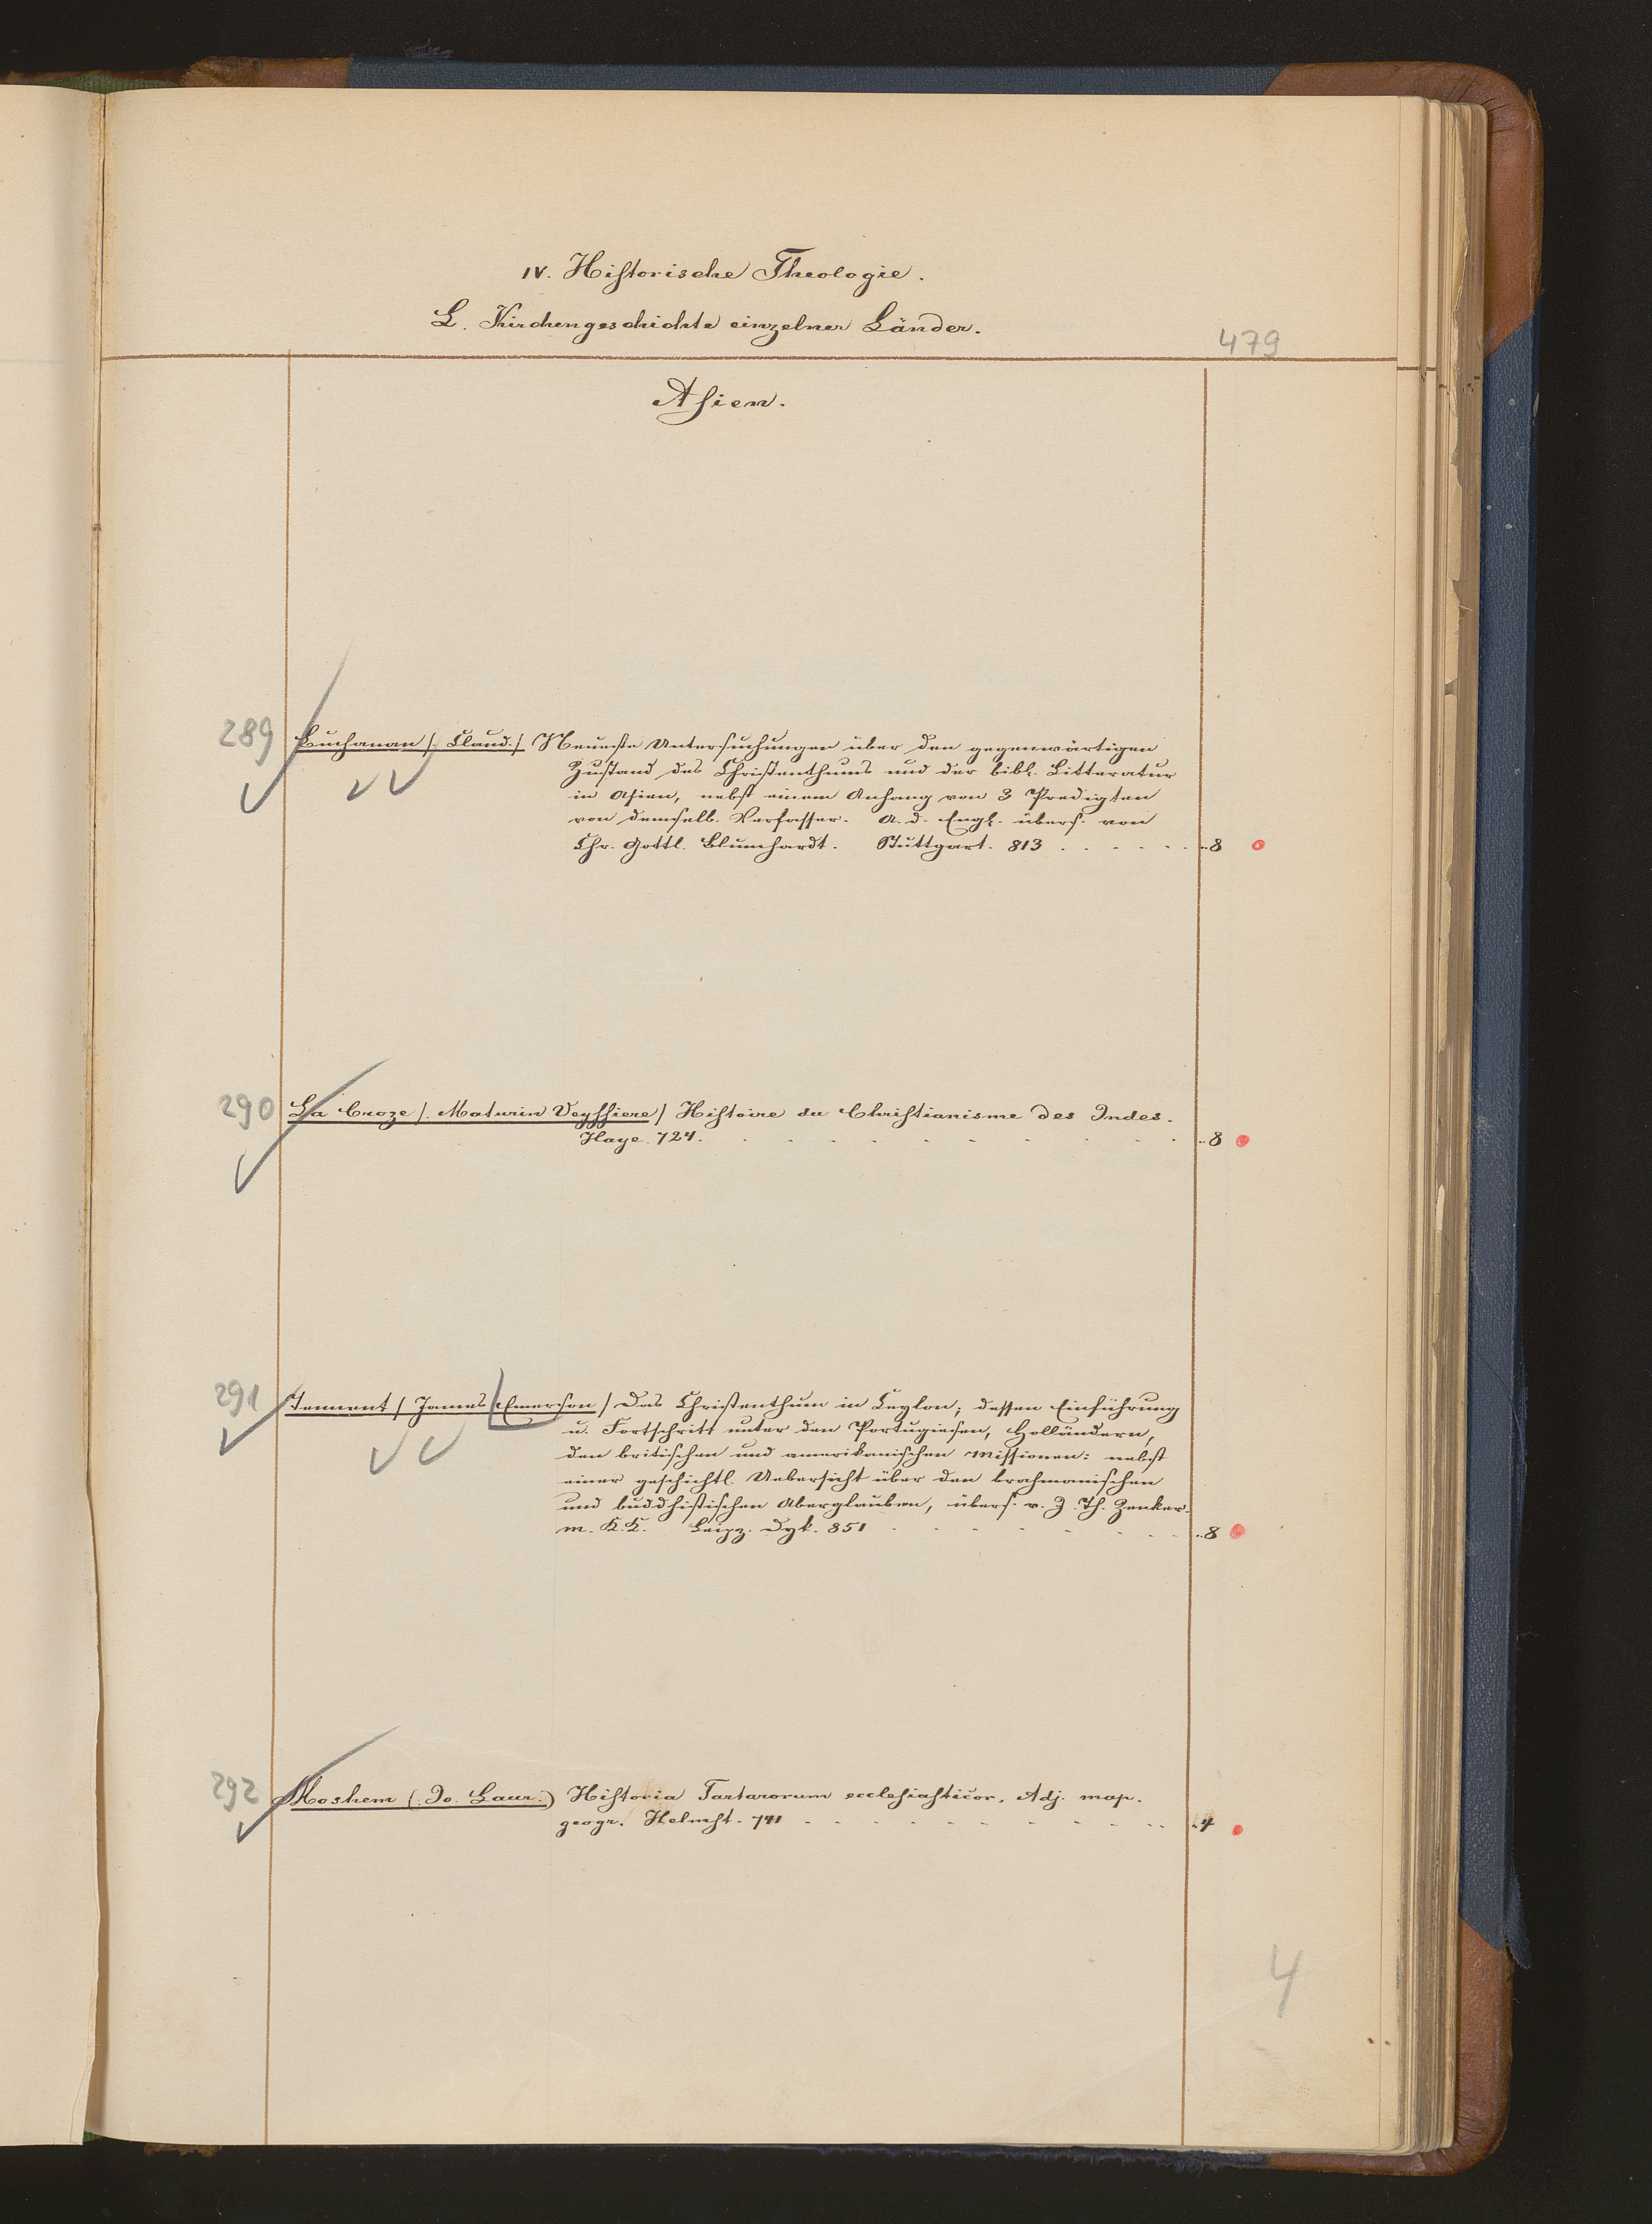 IV. Historische Theologie.
L. Kirchengeschichte einzelner Länder.
479
Asien.
289 Buchanan /: Claud :/ Neueste Untersuchungen über den gegenwärtigen
Zustand des Christenthums und der bibl. Litteratur
in Asien, nebst einem Anhang von 3 Predigten
von demselb. Verfasser. A. d. Engl. übers. von
Chr. Gottl. Blumhardt. Stuttgart. 813 . . . . . . ..8
290 La Croze /: Maturin Veyssiere / Histoire du Christianisme des Indes.
Haye. 724. . . . . . . . . . . ..8
291 Tennent / James Emerson / Das Christenthum in Ceylon; dessen Einführung
u. Fortschritt unter den Portugiesen, Holländern,
den britischen und amerikanischen Missionen: nebst
einer geschichtl. Uebersicht über den brahmanischen
und buddhistischen Aberglauben, übers. v. J. Th. Zenker.
m. K. K. Leipz. Dyk. 851 . . . . . . . . ..8
292 Moshem (: Jo. Laur :) Historia Tartarorum ecclesiasticor, Adj. map.
geogr. Helmst. 741 . . . . . . . . . . . ..4
4